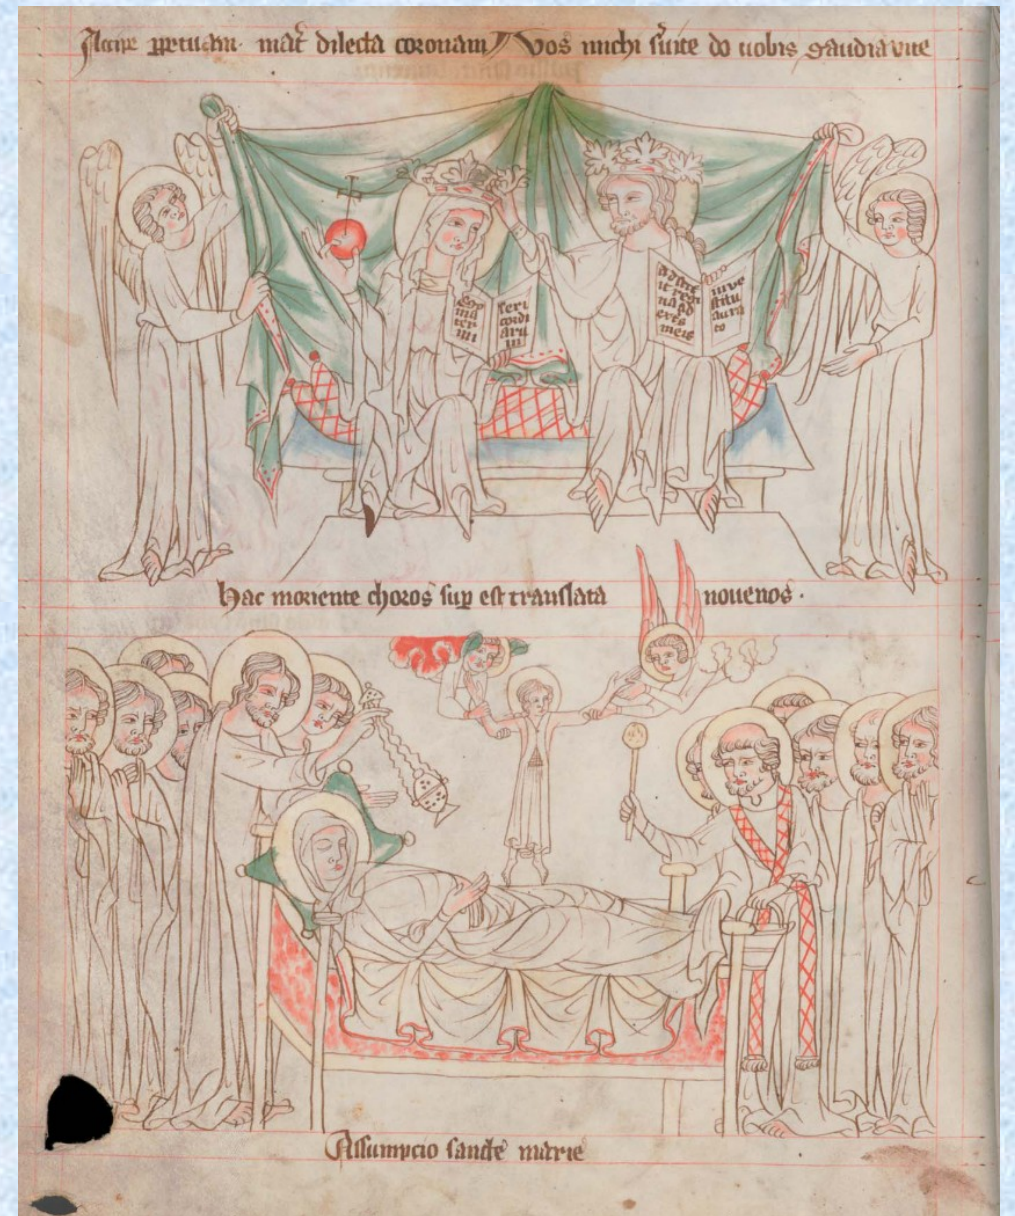 Accipe ꝑpetuam mat̄ dilecta coronam Vos michi suite do uobis gaudia uite
cor
ma
ter
mi
seri
cordi
aru
m
adstet
it regi
na ad
extris
meis
in ve
stitu
aura
to
hac moriente choros sup est translata nouenos
Assumpcio sancte marie